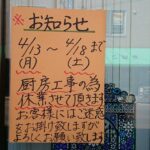 ※お知らせ
4/13〜4/18まで
(月) (土)
厨房工事の為
休業させて頂ます
お客様にはご迷惑
をお掛け致しますが
よろしくお願い致します